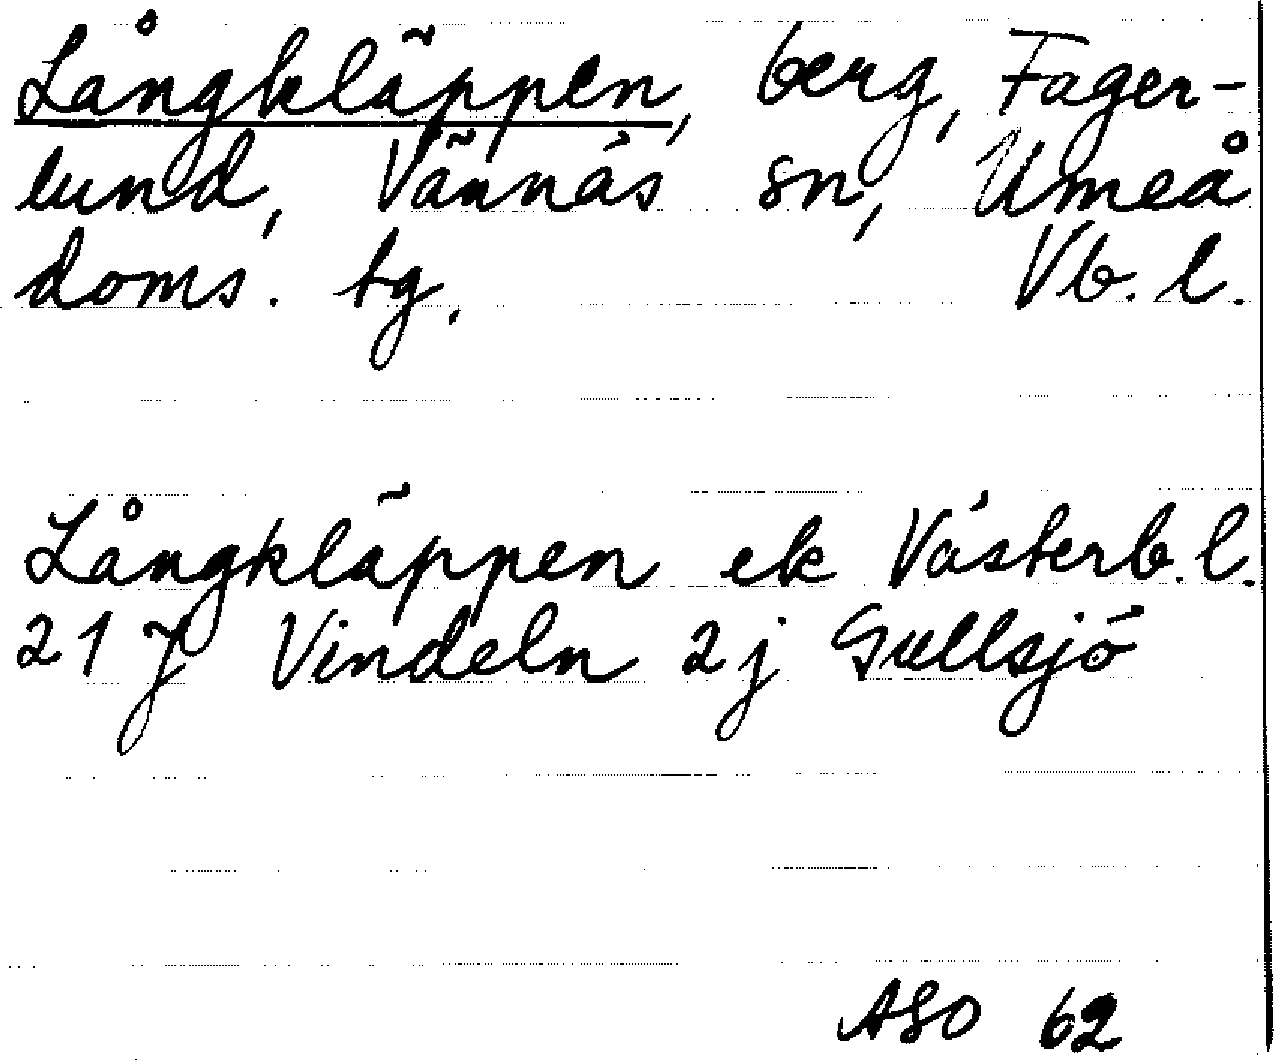 Långkläppen, berg, Fager-
lund, Vännäs sn, Umeå
doms. tg. Vb. l.
Långkläppen ek Västerb. l.
21 J Vindeln 2j Gullsjö
ASO 62